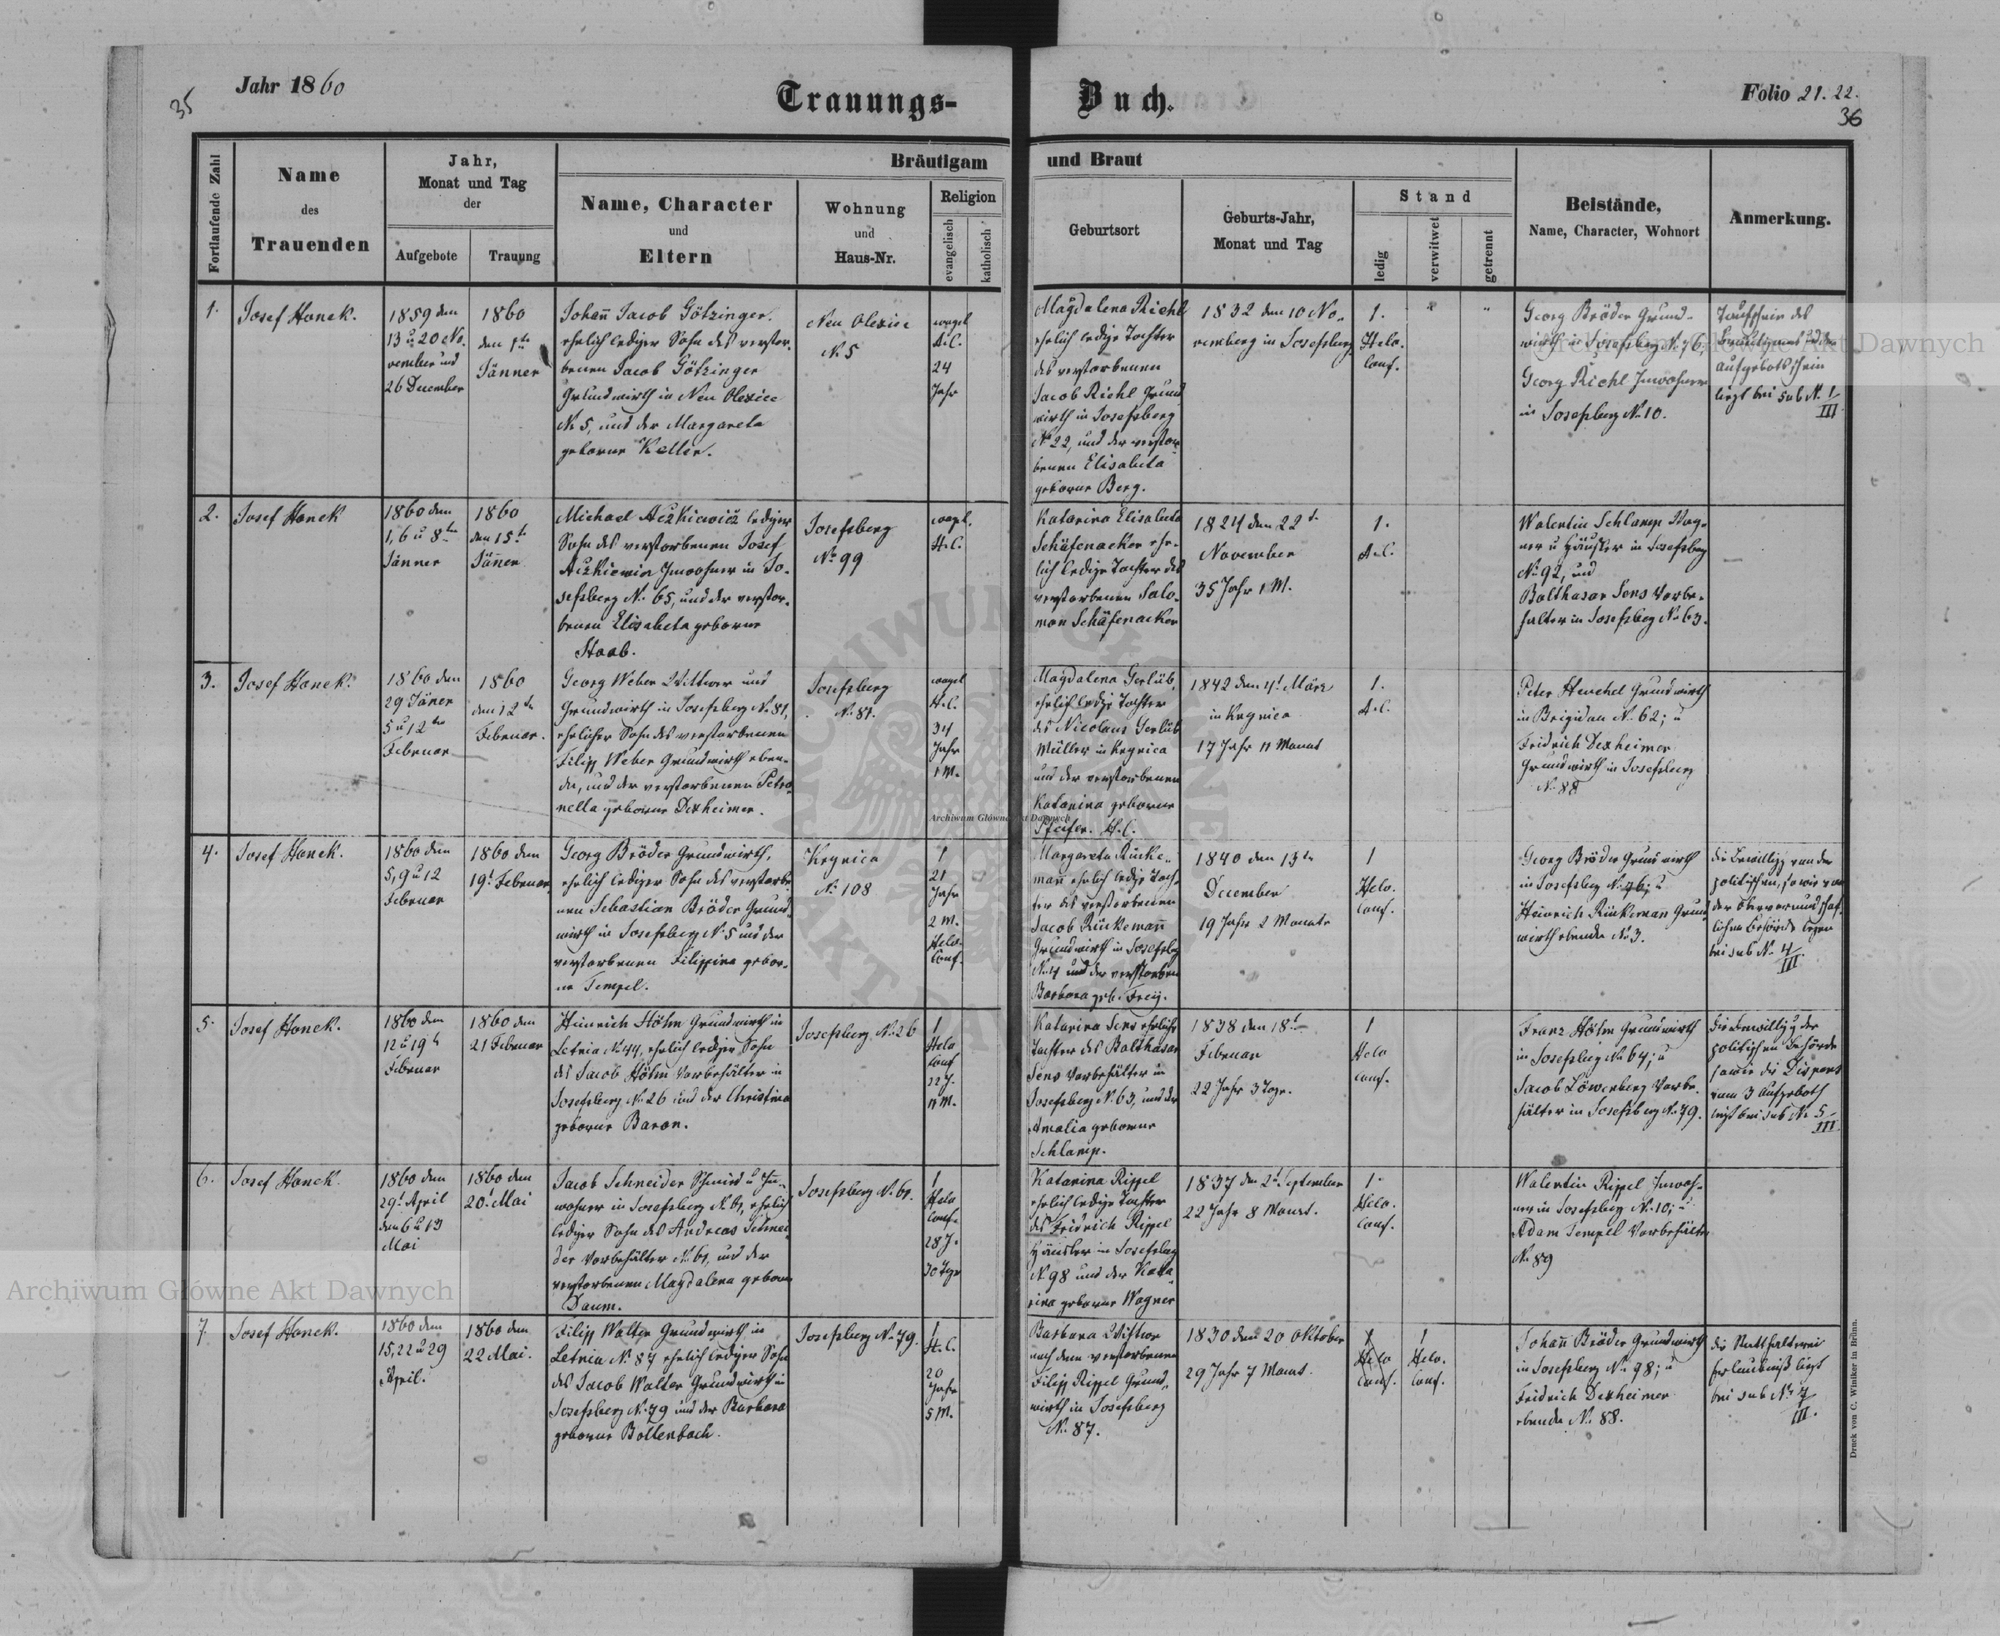 Jahr 1860
35
Trauungs-Buch.
Folio 21. 22.
36
Fortlaufende Zahl
Name
des
Trauenden
Jahr,
Monat und Tag
der
Aufgebote
Trauung
Bräutigam und Braut
Name, Character
und
Eltern
Wohnung
und
Haus-Nr.
Religion
evangelisch
katholisch
Geburtsort
Geburts-Jahr,
Monat und Tag
Stand
ledig
verwitwet
getrennt
Beistände,
Name, Character, Wohnort
Anmerkung.
1.
Josef Honek.
1859 den
13 u 20 No-
vember und
26 December
1860
den 1te
Jänner
Johan̄ Jacob Götzinger.
ehelich lediger Sohn des verstor-
benen Jacob Götzinger
Grundwirth in Neu Olexice
N. 5, und der Margareta
geborne Keller.
Neu Olexice
N. 5
evangel
A.C.
24
Jahr
Magdalena Riehl
ehelich ledige Tochter
des verstorbenen
Jacob Riehl Grund
wirth in Josefsberg
No 22, und der verstor
benen Elisabeta
geborne Berg.
1832 den 10 No-
vember in Josefsberg
1.
Helv.
Conf.
Georg Bröder Grund-
wirth in Josefsberg N. 76,
Georg Riehl Inwohner
in Josefsberg No 10.
Taufschein des
Bräutigams und der
Aufgebotsschein
liegt bei sub N. 1/III
2.
Josef Honek
1860 den
1, 6 u 8te
Jänner
1860
den 15t
Jän̄er
Michael Aczkiewicz lediger
Sohn des verstorbenen Josef
Aczkiewicz Inwohner in Jo-
sefsberg N. 65, und der verstor-
benen Elisabeta geborne
Haab.
Josefsberg
No 99
evangl.
H.C.
Katarina Elisabeta
Schäfenacker ehe-
lich ledige Tochter des
verstorbenen Salo-
mon Schäfenacker
1824 den 22t
November
35 Jahr 1 M.
1.
A.C.
Walentin Schlamp Wag-
ner u Häusler in Josefsberg
No 92, und
Balthasar Sens Vorbe-
halter in Josefsberg No 63.
3.
Josef Honek.
1860 den
29 Jäner
5 u 12te
Februar
1860
den 12te
Februar.
Georg Weber Wittwer und
Grundwirth in Josefsberg No 81,
ehelicher Sohn des verstorbenen
Filipp Weber Grundwirth eben-
da, und der verstorbenen Petro-
nella geborne Dexheimer.
Josefsberg
N. 81.
evangel
H.C.
34
Jahr
1 M.
Magdalena Gerlüb,
ehelich ledige Tochter
des Nicolaus Gerlüb
Müller in Krynica
und der verstorbenen
Katarina geborne
Pfeifer. H.C.
1842 den 4t März
in Krynica
17 Jahr 11 Monat
1.
A.C.
Peter Henchel Grundwirth
in Brigidau N. 62; u
Fridrich Dexheimer
Grundwirth in Josefsberg
No 88
4.
Josef Honek.
1860 den
5, 9 u 12
Februar
1860 den
19t Februar
Georg Bröder Grundwirth,
ehelich lediger Sohn des verstorbe-
nen Sebastian Bröder Grund-
wirth in Josefsberg N. 5 und der
verstorbenen Filippina gebor-
ne Tempel.
Krynica
No 108
1
21
Jahr
2 M.
Helv.
Conf.
Margareta Rücke-
man̄ ehelich ledige Toch-
ter des verstorbenen
Jacob Rückeman̄
Grundwirth in Josefsbg
N. 4 und der verstorben
Barbara geb. Frey.
1840 den 13te
December
19 Jahr 2 Monate
1
Helv.
Conf.
Georg Bröder Grundwirth
in Josefsberg N. 76; u
Heinrich Rückeman Grund
wirth ebenda No 3.
die Bewilligg von der
politischen, sowie von
der obervormundschaft-
lichen Behörde liegen
bei sub N. 4/III
5.
Josef Honek.
1860 den
12 u 19t
Februar
1860 den
21 Februar
Heinrich Höhn Grundwirth in
Letnia N. 44, ehelich lediger Sohn
des Jacob Höhn Vorbehälter in
Josefsberg No 26 und der Christina
geborne Baron.
Josefsberg No 26
1
Helv
Conf
22 J.
11 M.
Katarina Sens eheliche
Tochter des Balthasar
Sens Vorbehälter in
Josefsberg N. 63, und der
Amalia geborne
Schlamp.
1838 den 18t
Februar
22 Jahr 3 Tage.
1
Helv
Conf.
Franz Höhn Grundwirth
in Josefsberg No 64; u
Jacob Löwenberg Vorbe-
hälter in Josefsberg No 79.
Die Bewilligg der
politischen Behörde
sowie die Dispens
vom 3 Aufgeboth
liegt bei sub No 5/III
6.
Josef Honek.
1860 den
29t April
den 6 u 13
Mai
1860 den
20t Mai
Jacob Schneider Schmied u In-
wohner in Josefsberg N. 61, ehelich
lediger Sohn des Andreas Schnei-
der Vorbehälter N. 61, und der
verstorbenen Magdalena geborne
Daum.
Josefsberg N. 61.
1
Helv
Conf.
28 J.
30 Tage
Katarina Rippel
ehelich ledige Tochter
des Fridrich Rippel
Häusler in Josefsberg
N. 98 und der Kata-
rina geborne Wagner
1837 den 2t September
22 Jahr 8 Monat.
1.
Helv.
Conf.
Walentin Rippel Inwoh-
ner in Josefsberg No 10; u
Adam Tempel Vorbehälter
No 89
7
Josef Honek.
1860 den
15, 22 u 29
April.
1860 den
22 Mai.
Filipp Walter Grundwirth in
Letnia No 87 ehelich lediger Sohn
des Jacob Walter Grundwirth in
Josefsberg No 79 und der Barbara
geborne Bollenbach.
Josefsberg No 79.
1
H.C.
20
Jahr
5 M.
Barbara Wittwe
nach dem verstorbenen
Filipp Rippel Grund-
wirth in Josefsberg
No 87.
1830 den 20 Oktober
29 Jahr 7 Monat
1
Helv
Conf.
1
Helv.
Conf.
Johan̄ Bröder Grundwirth
in Josefsberg No 98; u
Fridrich Dexheimer
ebenda No 88.
die Statthalterei
Erlaubniß liegt
bei sub No 7/III.
Druck von C. Winiker in Brünn.
Archiwum Główne Akt Dawnych
Archiwum Główne Akt Dawnych
Archiwum Główne Akt Dawnych